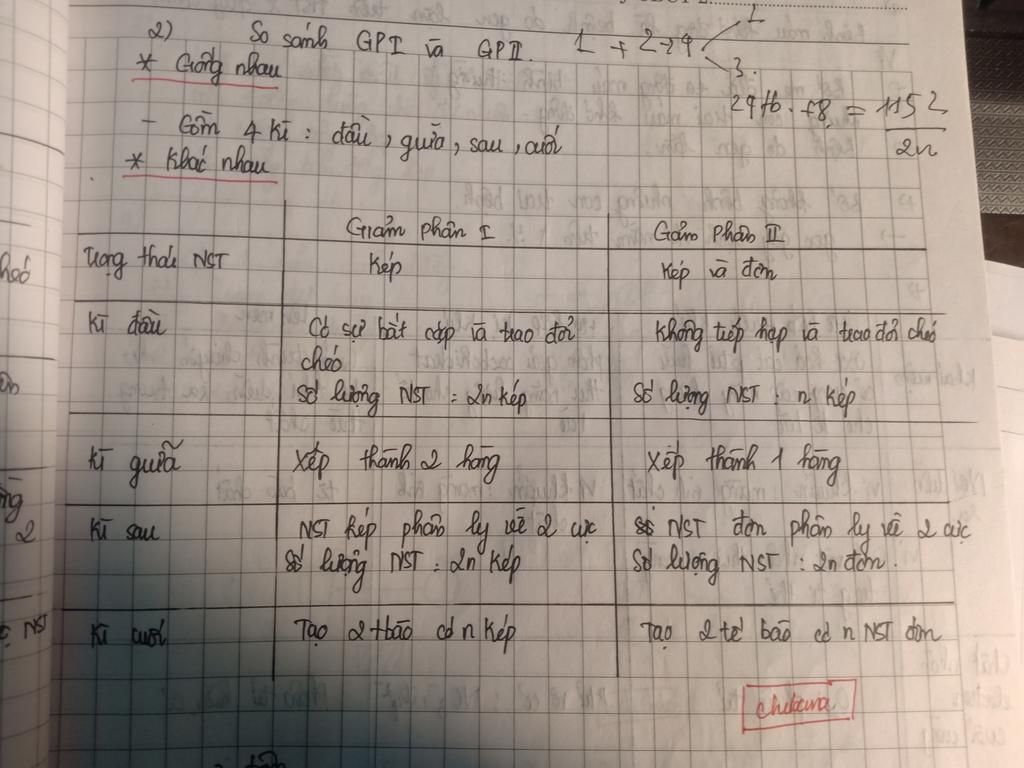 2) So sánh GPI và GPII. 1 + 2 → 9 1
3.
* Giống nhau
24tb . 48 = 1152
2n
- Gồm 4 kì : đầu, giữa, sau, cuối
* Khác nhau
Giảm phân I Giảm phân II
Trạng thái NST Kép Kép và đơn
Kì đầu Có sự bắt cặp và trao đổi Không tiếp hợp và trao đổi chéo
chéo
Số lượng NST = 2n kép Số lượng NST : n kép
Kì giữa Xếp thành 2 hàng Xếp thành 1 hàng
Kì sau NST kép phân ly về 2 cực NST đơn phân ly về 2 cực
Số lượng NST = 2n kép Số lượng NST : 2n đơn.
Kì cuối Tạo 2 tbào có n kép Tạo 2 tế bào có n NST đơn
2
NST